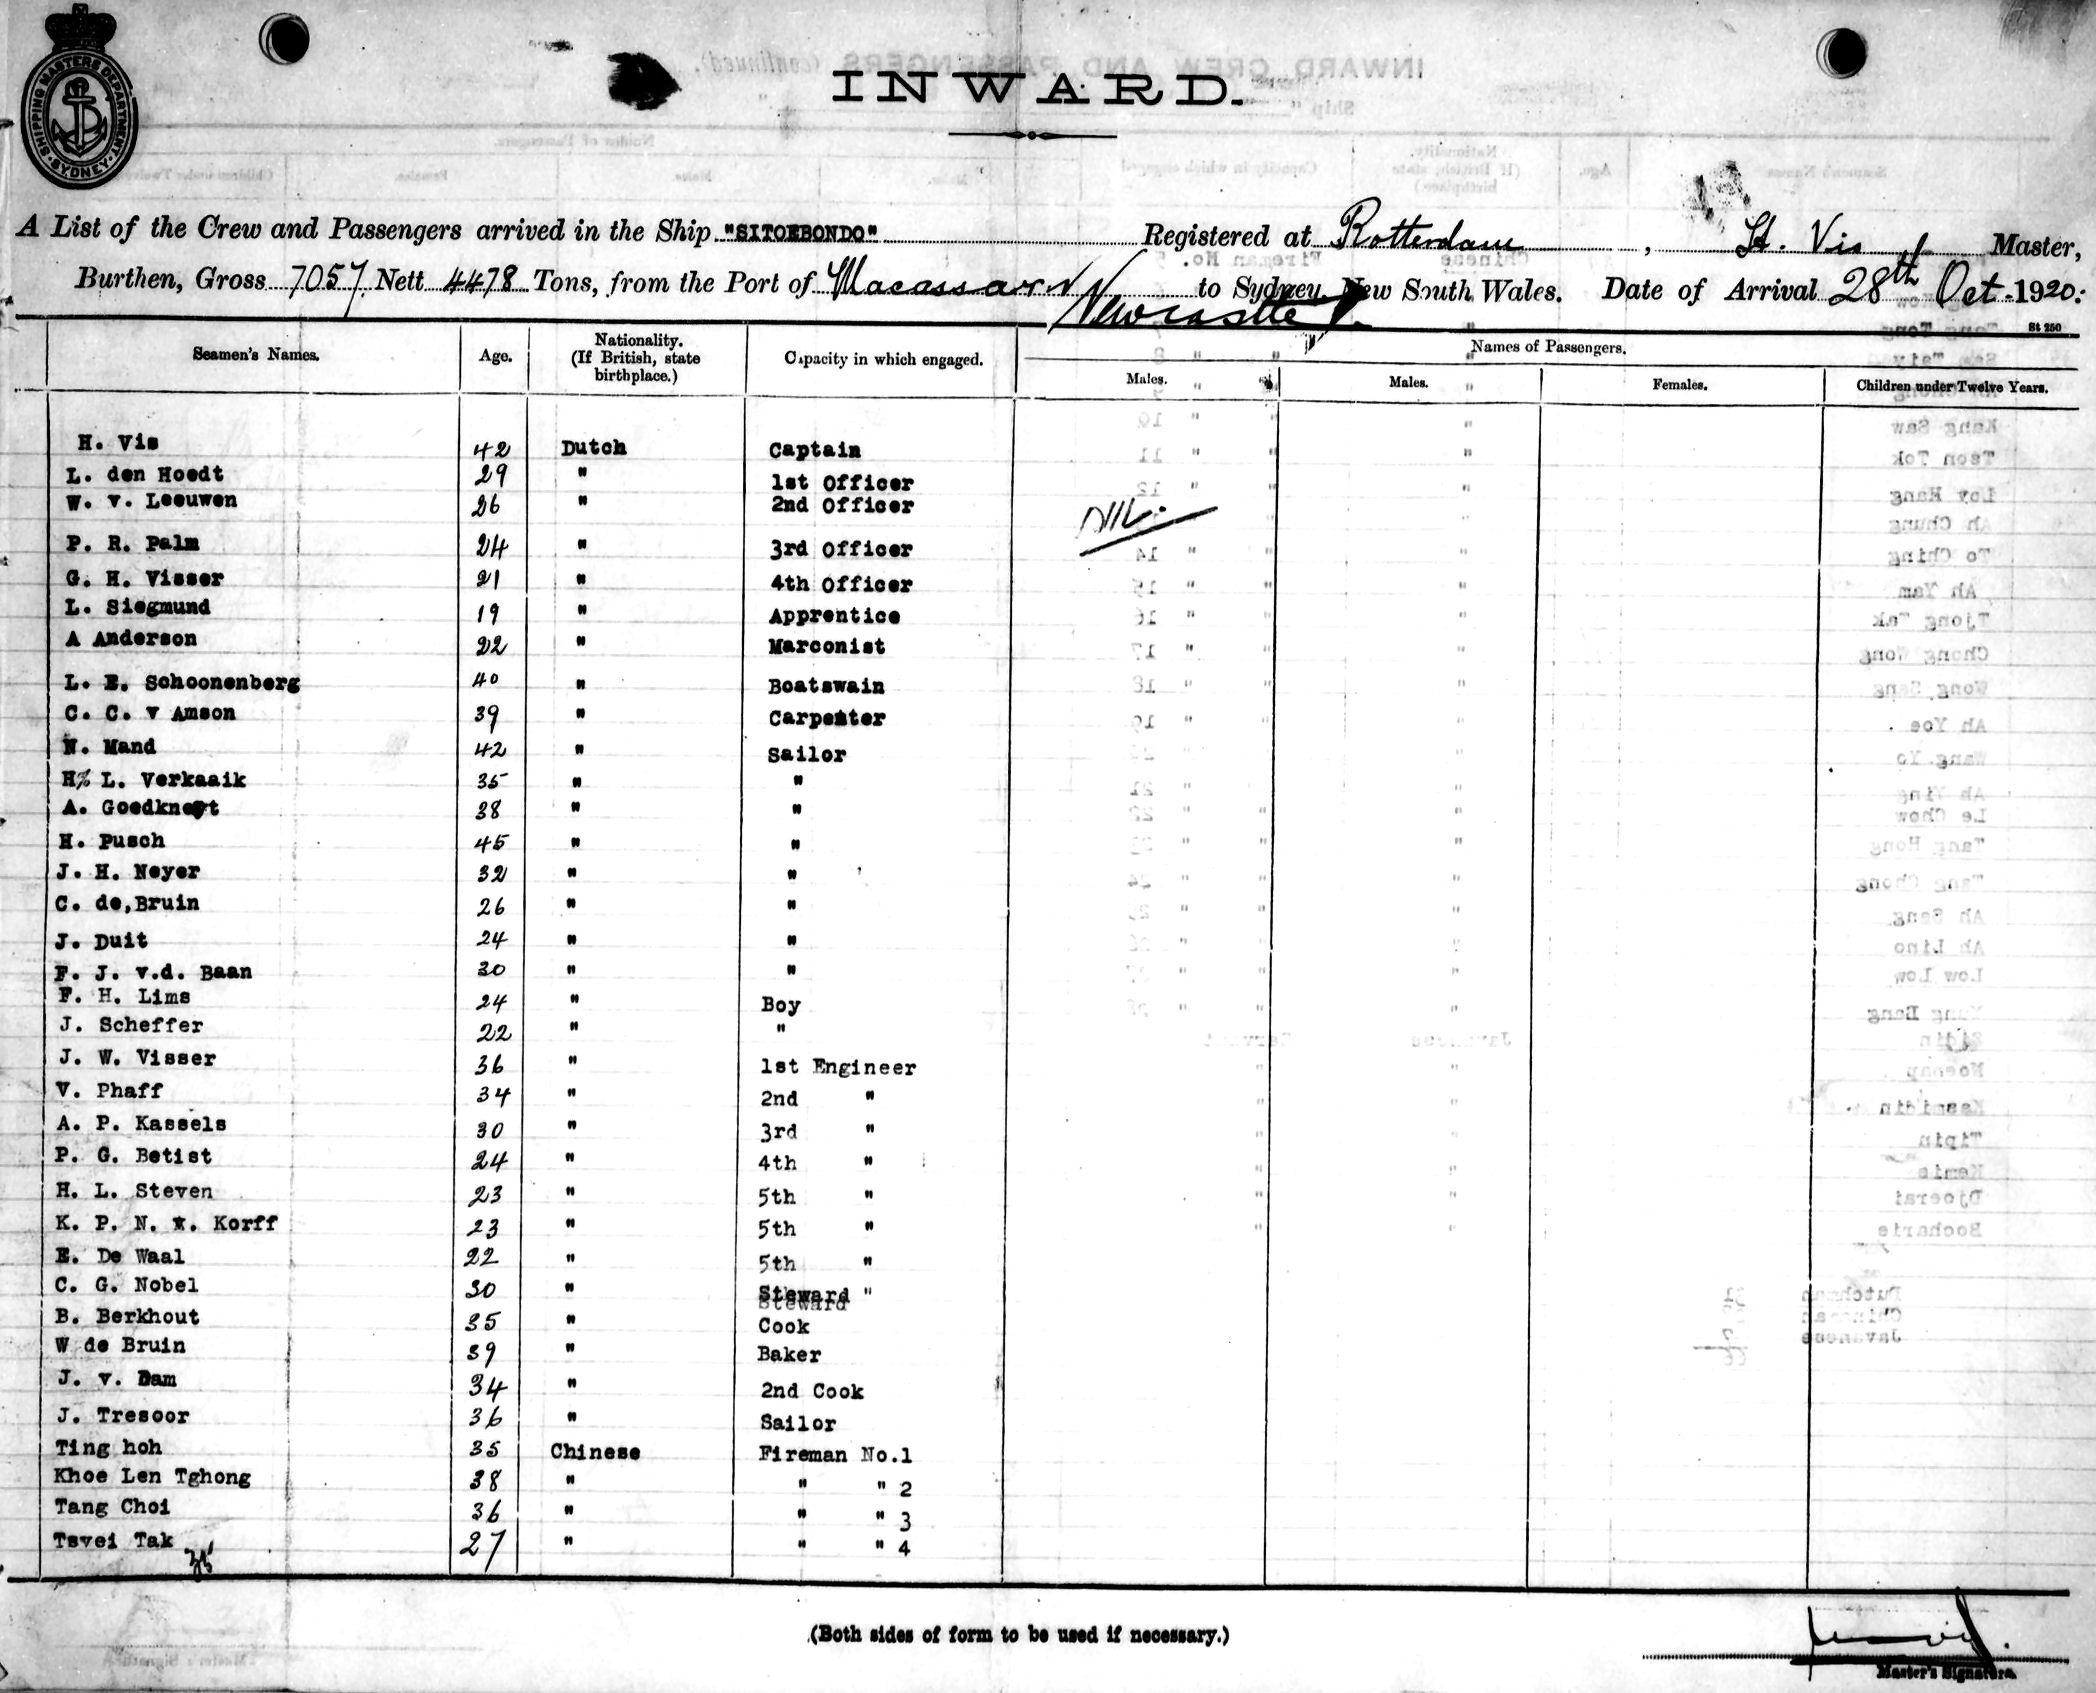 SHIPPING MASTERS DEPARTMENT. SYDNEY
INWARD.
A List of the Crew and Passengers arrived in the Ship "SITOEBONDO" Registered at Rotterdam, H. Vis Master,
Burthen, Gross 7057 Nett 4478 Tons, from the Port of Macassar to Sydney New South Wales. Date of Arrival 28th Oct. 1920.
Newcastle
St 250
Seamen's Names. Age. Nationality. (If British, state birthplace.) Capacity in which engaged. Names of Passengers.
Males. Males. Females. Children under Twelve Years.
H. Vis 42 Dutch Captain
L. den Hoedt 29 " 1st Officer
W. v. Leeuwen 26 " 2nd Officer
Nil.
P. R. Palm 24 " 3rd Officer
G. H. Visser 21 " 4th Officer
L. Siegmund 19 " Apprentice
A Anderson 22 " Marconist
L. E. Schoonenberg 40 " Boatswain
C. C. v Amson 39 " Carpenter
N. Mand 42 " Sailor
H. L. Verkaaik 35 " "
A. Goedknegt 38 " "
H. Pusch 45 " "
J. H. Neyer 32 " "
C. de,Bruin 26 " "
J. Duit 24 " "
F. J. v.d. Baan 30 " "
F. H. Lims 24 " Boy
J. Scheffer 22 " "
J. W. Visser 36 " 1st Engineer
V. Phaff 34 " 2nd "
A. P. Kassels 30 " 3rd "
P. G. Betist 24 " 4th "
H. L. Steven 23 " 5th "
K. P. N. Korff 23 " 5th "
E. De Waal 22 " 5th "
C. G. Nobel 30 " Steward "
B. Berkhout 35 " Cook
W de Bruin 39 " Baker
J. v. Dam 34 " 2nd Cook
J. Tresoor 36 " Sailor
Ting hoh 35 Chinese Fireman No.1
Khoe Len Tghong 38 " " " 2
Tang Choi 36 " " " 3
Tsvei Tak 27 " " " 4
35
(Both sides of form to be used if necessary.)
Master's Signature.